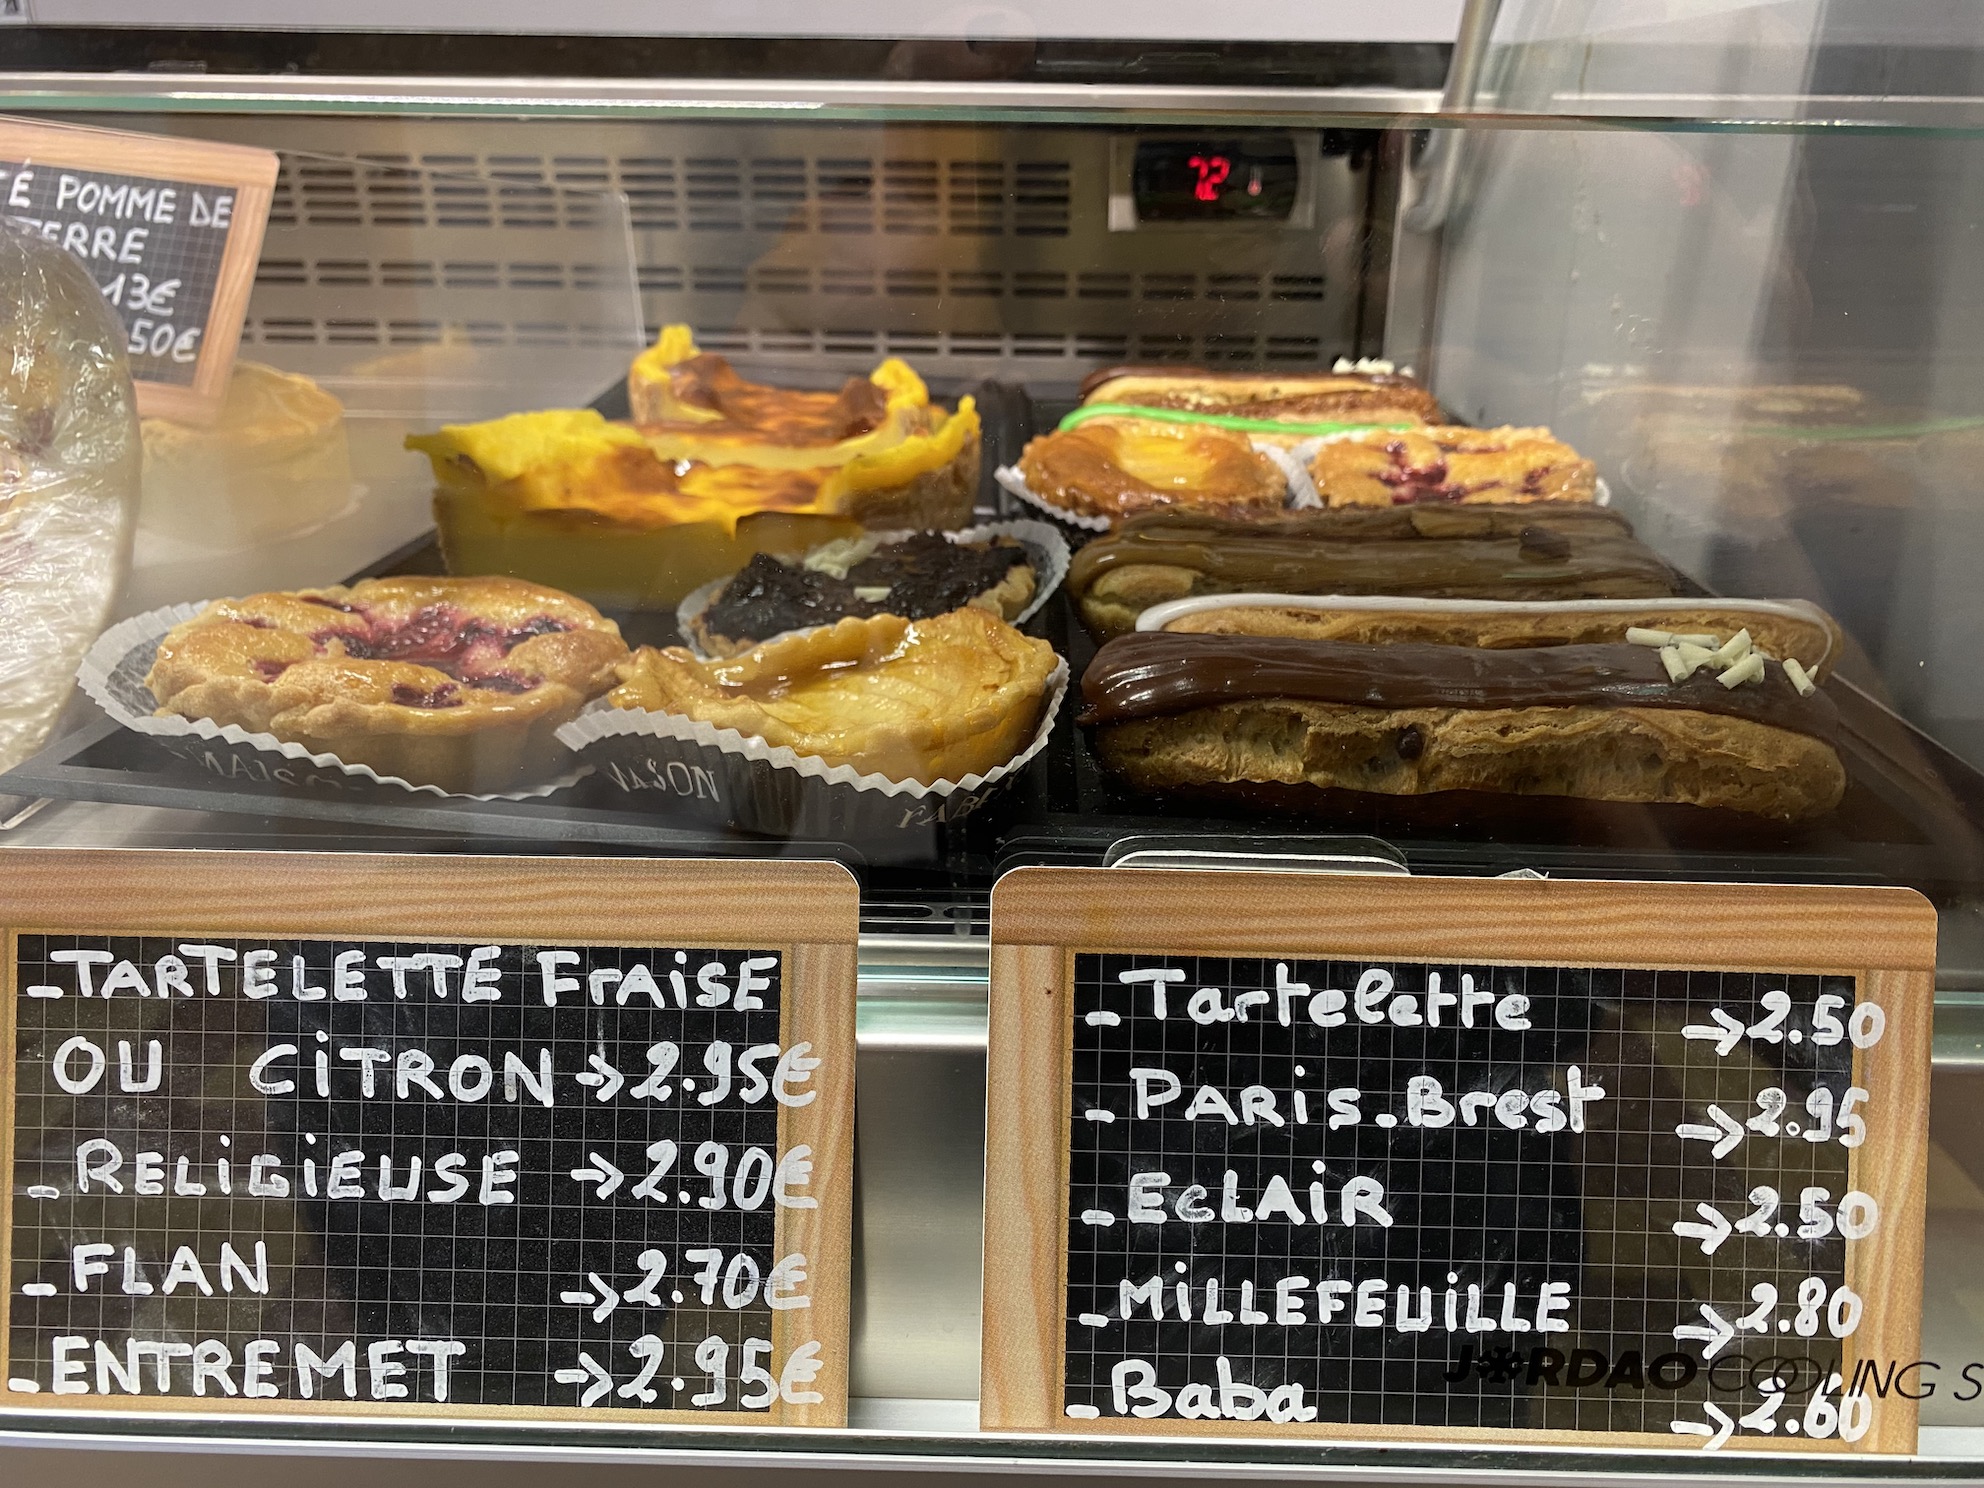 É POMME DE
TERRE
13€
50€
72
MAISON
_TARTELETTE FRAISE
OU CITRON → 2.95€
_RELIGIEUSE → 2.90€
_FLAN → 2.70€
_ENTREMET → 2.95€
_Tartelette → 2.50
_PARIS_Brest → 2.95
_ECLAIR → 2.50
_MILLEFEUILLE → 2.80
_Baba → 2.60
JORDAO COOLING S